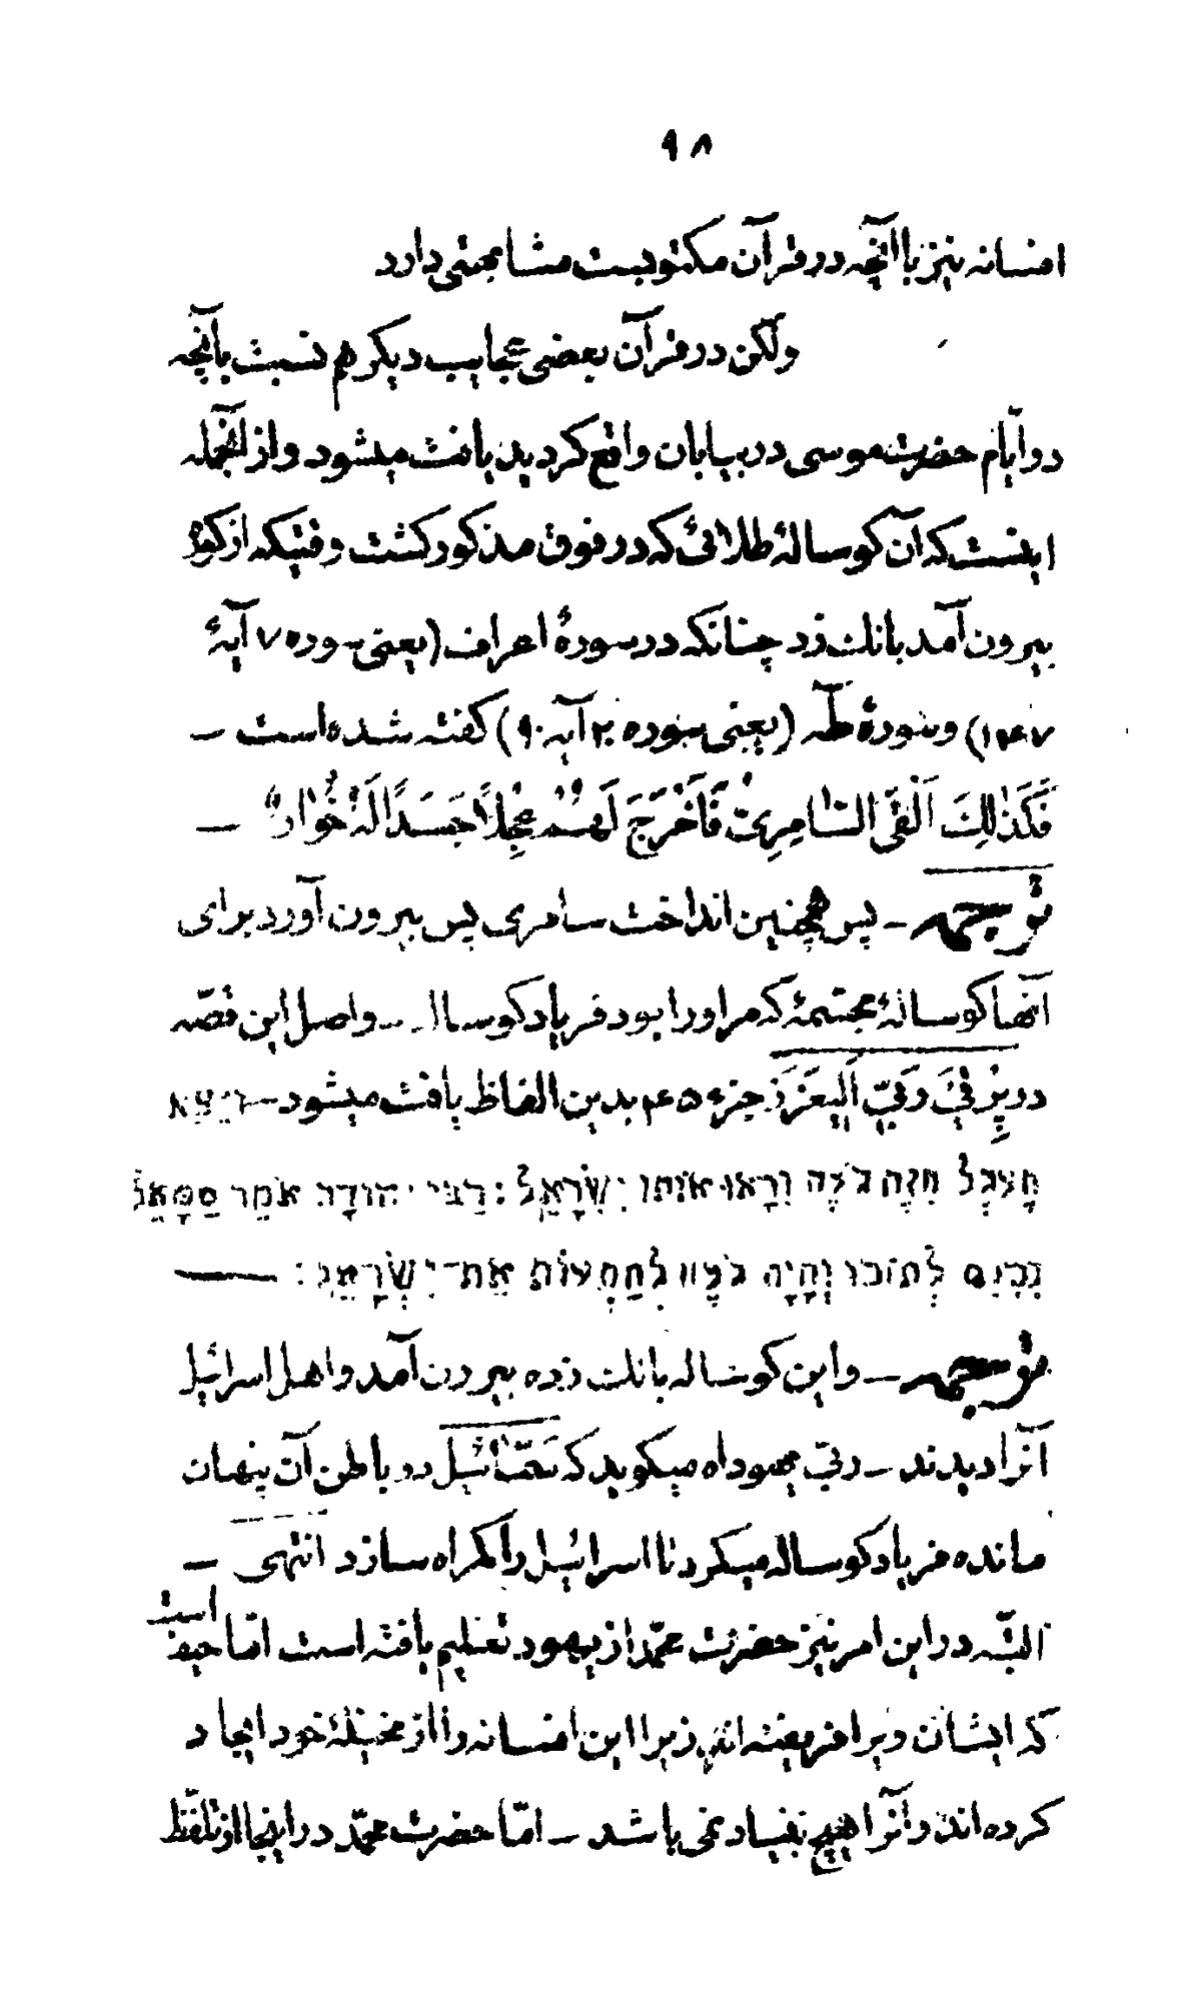 ۹۸
افسانه نیز باآنچه در قرآن مکتوبست مشابهتی دارد
ولکن در قرآن بعضی عجایب دیگر هم نسبت بآنچه
در ایّام حضرت موسی در بیابان واقع گردید یافت میشود و از آنجمله
اینست که آن گوسالۀ طلائی که در فوق مذکور گشت وقتیکه از کوره
بیرون آمد بانک زد چنانکه در سورۀ اعراف (یعنی سوره ۷ آیۀ
۱۴۷) و سورۀ طٓه (یعنی سوره ۲۰ آیه ۹۰) گفته شده است –
فَكَذٰلِكَ اَلْقَى السَّامِرِيُّ فَاَخْرَجَ لَهُمْ عِجْلاً جَسَدًا لَهُ خُوَارٌ –
ترجمه – پس همچنین انداخت سامری پس بیرون آورد برای
آنها گوسالۀ مجسّمۀ که مر او را بود فریاد گوساله – واصل این قصّه
در پِرْقِیَ رَبِّی اَلِیعَزَرَ جزء ۴۵ بدین الفاظ یافت میشود – ויצא
העגל הזה געה וראו אותו ישראל : רבי יהודה אמר סמאל
נכנס לתוכו והיה גועה להתעות את־ישראל : –
ترجمه – واین گوساله بانک زده بیرون آمد واهل اسرائیل
آنرا دیدند – ربّی یهوداه میگوید که سَمّائیل در باطن آن پنهان
مانده فریاد گوساله میکرد تا اسرائیل را گمراه سازد انتهی –
البتّه در این امر نیز حضرت محمّد از یهود تعلیم یافته است امّا حیف است
که ایشان ویرا فریفته اند زیرا این افسانه را از مخیّلۀ خود ایجاد
کرده اند و آنرا هیچ بنیاد نمی باشد – امّا حضرت محمّد در اینجا از تلفّظ